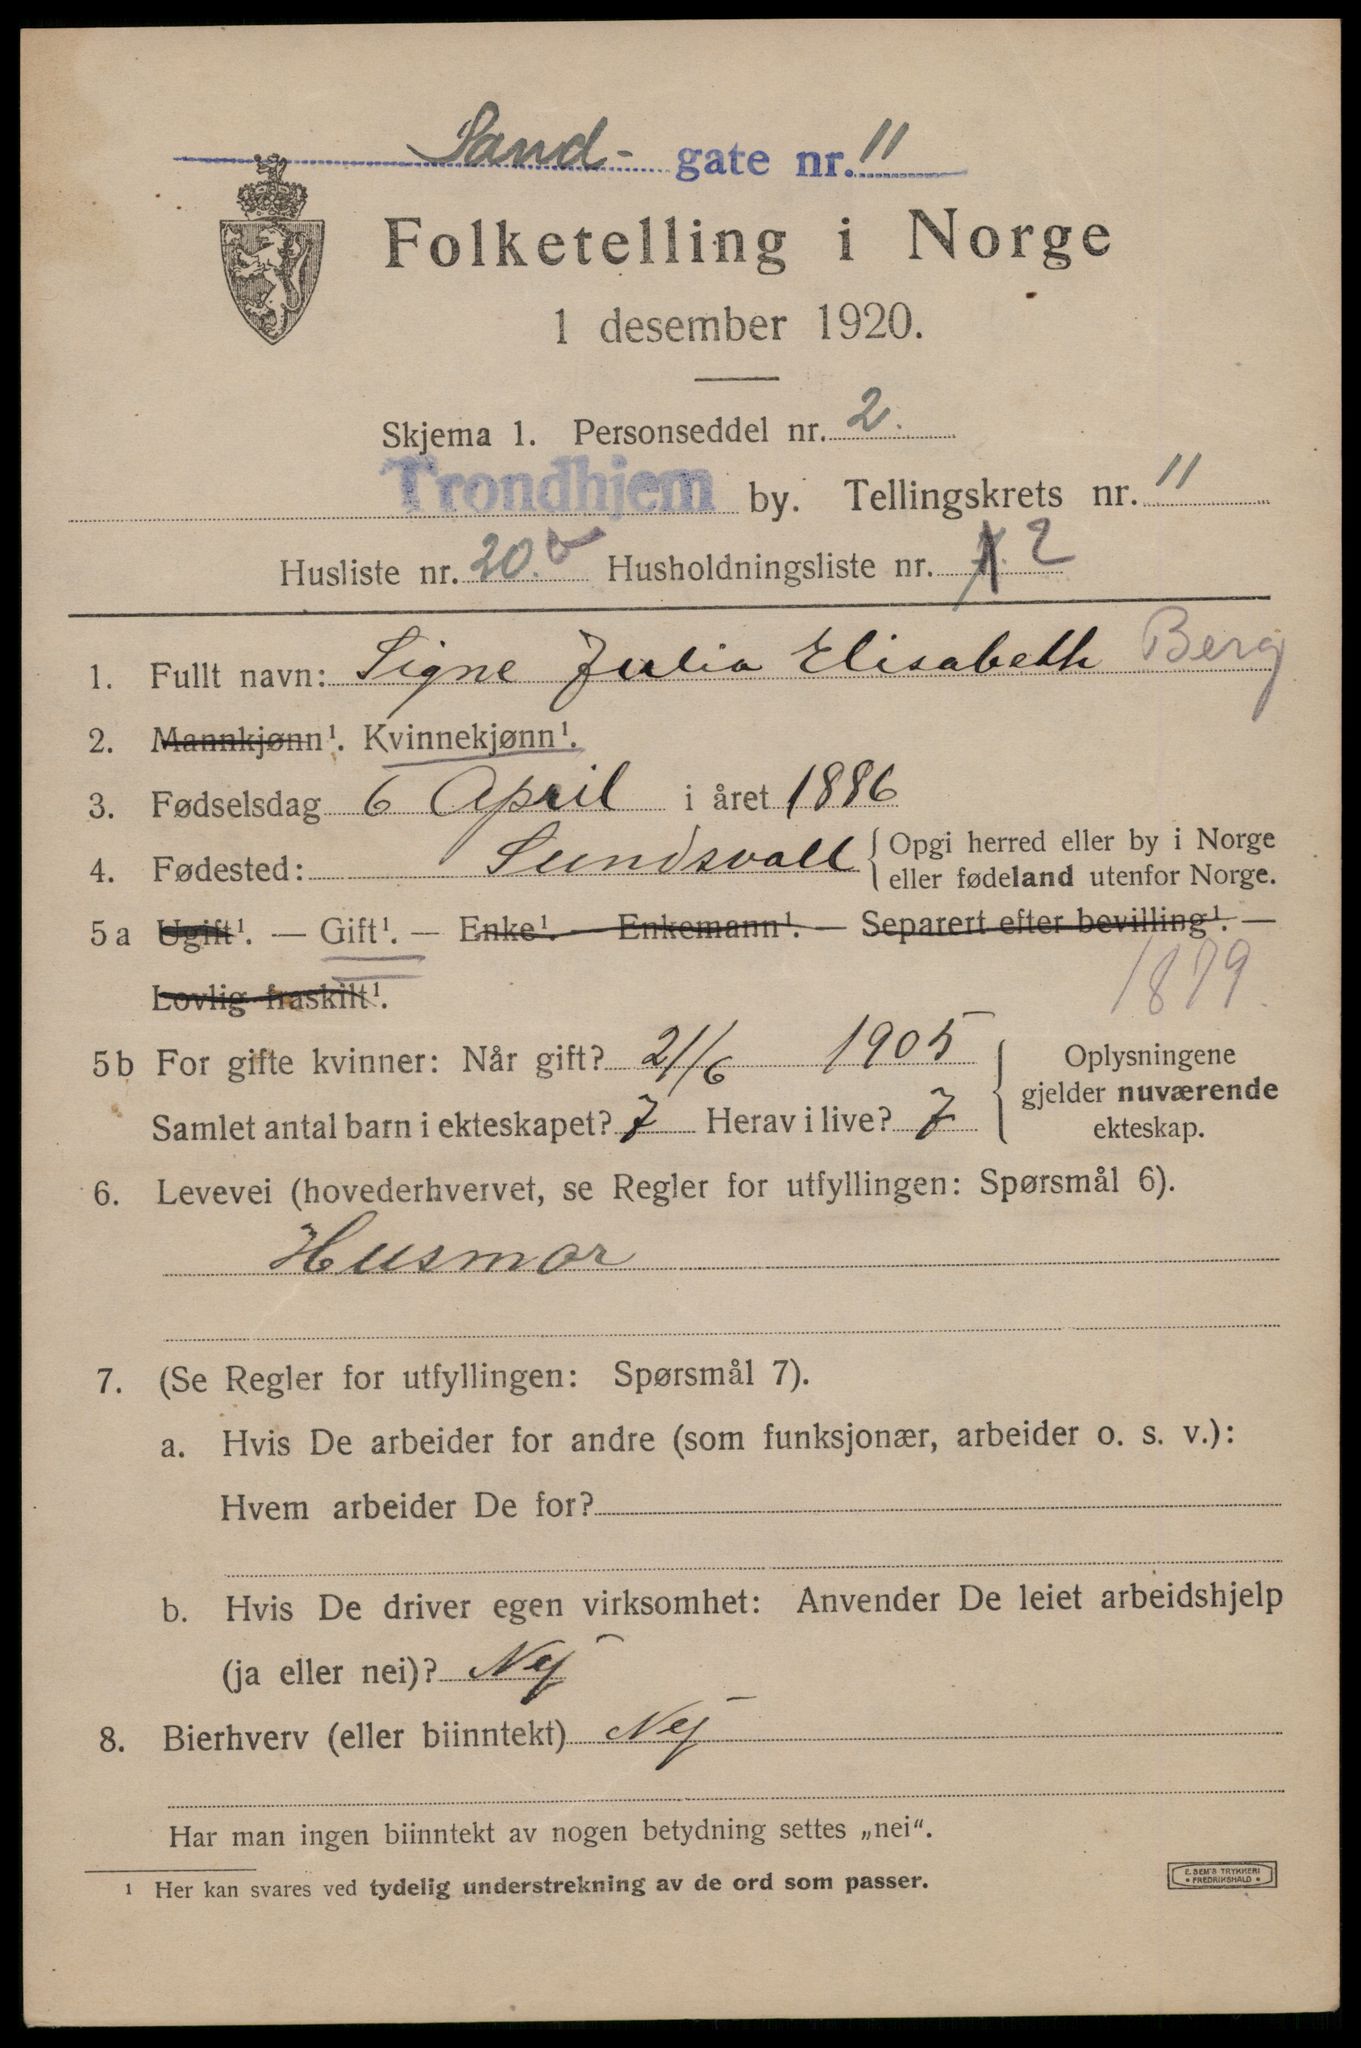 Sand- gate nr. 11
Folketelling i Norge
1 desember 1920.
Skjema 1. Personseddel nr. 2.
Trondhjem by. Tellingskrets nr. 11
Husliste nr. 20. Husholdningsliste nr. 2
1. Fullt navn: Signe Julia Elisabeth Berg
2. Mannkjønn¹. Kvinnekjønn¹.
3. Fødselsdag 6 April i året 1886
4. Fødested: Sundsvall { Opgi herred eller by i Norge
eller fødeland utenfor Norge.
5a Ugift¹. — Gift¹. — Enke¹. — Enkemann¹. — Separert efter bevilling¹. —
Lovlig fraskilt¹.
1879.
5b For gifte kvinner: Når gift? 21/6 1905
Samlet antal barn i ekteskapet? 7 Herav i live? 7
Oplysningene
gjelder nuværende
ekteskap.
6. Levevei (hovederhvervet, se Regler for utfyllingen: Spørsmål 6).
Husmor
7. (Se Regler for utfyllingen: Spørsmål 7).
a. Hvis De arbeider for andre (som funksjonær, arbeider o. s. v.):
Hvem arbeider De for?
b. Hvis De driver egen virksomhet: Anvender De leiet arbeidshjelp
(ja eller nei)? Nej
8. Bierhverv (eller biinntekt) Nej
Har man ingen biinntekt av nogen betydning settes „nei".
¹ Her kan svares ved tydelig understrekning av de ord som passer.
E. SEM'S TRYKKERI
• FREDRIKSHALD •